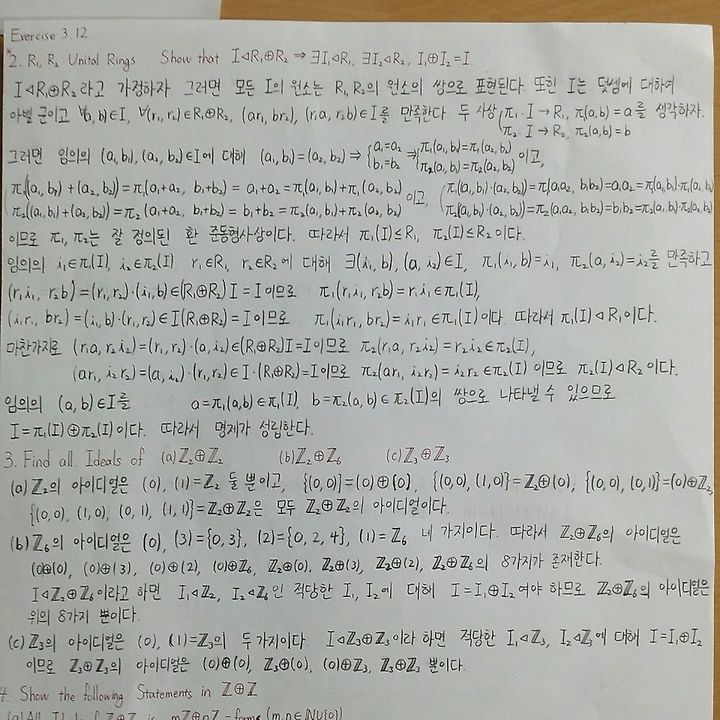 Exercise 3.12.
*2. R₁, R₂ Unital Rings Show that I◁R₁⊕R₂ ⇒ ∃I₁◁R₁, ∃I₂◁R₂, I₁⊕I₂=I.
I◁R₁⊕R₂ 라고 가정하자. 그러면 모든 I의 원소는 R₁, R₂의 원소의 쌍으로 표현된다. 또한 I는 덧셈에 대하여
아벨 군이고 ∀(a, b)∈I, ∀(r₁, r₂)∈R₁⊕R₂, (ar₁, br₂), (r₁a, r₂b)∈I를 만족한다. 두 사상 (π₁: I→R₁, π₁(a,b)=a를 생각하자.
π₂: I→R₂, π₂(a,b)=b
그러면 임의의 (a₁, b₁), (a₂, b₂)∈I에 대해 (a₁, b₁)=(a₂, b₂) ⇒ {a₁=a₂ ⇒ {π₁(a₁, b₁)=π₁(a₂, b₂) 이고,
b₁=b₂ π₂(a₁, b₁)=π₂(a₂, b₂)
(π₁((a₁, b₁)+(a₂, b₂))=π₁(a₁+a₂, b₁+b₂)=a₁+a₂=π₁(a₁, b₁)+π₁(a₂, b₂) 이고, (π₁((a₁, b₁)·(a₂, b₂))=π₁(a₁a₂, b₁b₂)=a₁a₂=π₁(a₁, b₁)·π₁(a₂, b₂)
π₂((a₁, b₁)+(a₂, b₂))=π₂(a₁+a₂, b₁+b₂)=b₁+b₂=π₂(a₁, b₁)+π₂(a₂, b₂) π₂((a₁, b₁)·(a₂, b₂))=π₂(a₁a₂, b₁b₂)=b₁b₂=π₂(a₁, b₁)·π₂(a₂, b₂)
이므로 π₁, π₂는 잘 정의된 환 준동형사상이다. 따라서 π₁(I)≤R₁, π₂(I)≤R₂이다.
임의의 i₁∈π₁(I), i₂∈π₂(I) r₁∈R₁, r₂∈R₂에 대해 ∃(i₁, b), (a, i₂)∈I, π₁(i₁, b)=i₁, π₂(a, i₂)=i₂를 만족하고
(r₁i₁, r₂b)=(r₁, r₂)·(i₁, b)∈(R₁⊕R₂)I=I이므로 π₁(r₁i₁, r₂b)=r₁i₁∈π₁(I),
(i₁r₁, br₂)=(i₁, b)·(r₁, r₂)∈I(R₁⊕R₂)=I이므로 π₁(i₁r₁, br₂)=i₁r₁∈π₁(I)이다. 따라서 π₁(I)◁R₁이다.
마찬가지로 (r₁a, r₂i₂)=(r₁, r₂)·(a, i₂)∈(R₁⊕R₂)I=I이므로 π₂(r₁a, r₂i₂)=r₂i₂∈π₂(I),
(ar₁, i₂r₂)=(a, i₂)·(r₁, r₂)∈I·(R₁⊕R₂)=I이므로 π₂(ar₁, i₂r₂)=i₂r₂∈π₂(I) 이므로 π₂(I)◁R₂이다.
임의의 (a, b)∈I를 a=π₁(a, b)∈π₁(I), b=π₂(a, b)∈π₂(I)의 쌍으로 나타낼 수 있으므로
I=π₁(I)⊕π₂(I)이다. 따라서 명제가 성립한다.
3. Find all Ideals of (a)ℤ₂⊕ℤ₂ (b)ℤ₂⊕ℤ₆ (c)ℤ₃⊕ℤ₃
(a) ℤ₂의 아이디얼은 (0), (1)=ℤ₂ 둘 뿐이고, {(0,0)}=(0)⊕(0), {(0,0), (1,0)}=ℤ₂⊕(0), {(0,0), (0,1)}=(0)⊕ℤ₂,
{(0,0), (1,0), (0,1), (1,1)}=ℤ₂⊕ℤ₂은 모두 ℤ₂⊕ℤ₂의 아이디얼이다.
(b) ℤ₆의 아이디얼은 (0), (3)={0, 3}, (2)={0, 2, 4}, (1)=ℤ₆ 네 가지이다. 따라서 ℤ₂⊕ℤ₆의 아이디얼은
(0)⊕(0), (0)⊕(3), (0)⊕(2), (0)⊕ℤ₆, ℤ₂⊕(0), ℤ₂⊕(3), ℤ₂⊕(2), ℤ₂⊕ℤ₆의 8가지가 존재한다.
I◁ℤ₂⊕ℤ₆이라고 하면 I₁◁ℤ₂, I₂◁ℤ₆인 적당한 I₁, I₂에 대해 I=I₁⊕I₂여야 하므로 ℤ₂⊕ℤ₆의 아이디얼은
위의 8가지 뿐이다.
(c) ℤ₃의 아이디얼은 (0), (1)=ℤ₃의 두가지이다. I◁ℤ₃⊕ℤ₃이라 하면 적당한 I₁◁ℤ₃, I₂◁ℤ₃에 대해 I=I₁⊕I₂
이므로 ℤ₃⊕ℤ₃의 아이디얼은 (0)⊕(0), ℤ₃⊕(0), (0)⊕ℤ₃, ℤ₃⊕ℤ₃ 뿐이다.
4. Show the following Statements in ℤ⊕ℤ